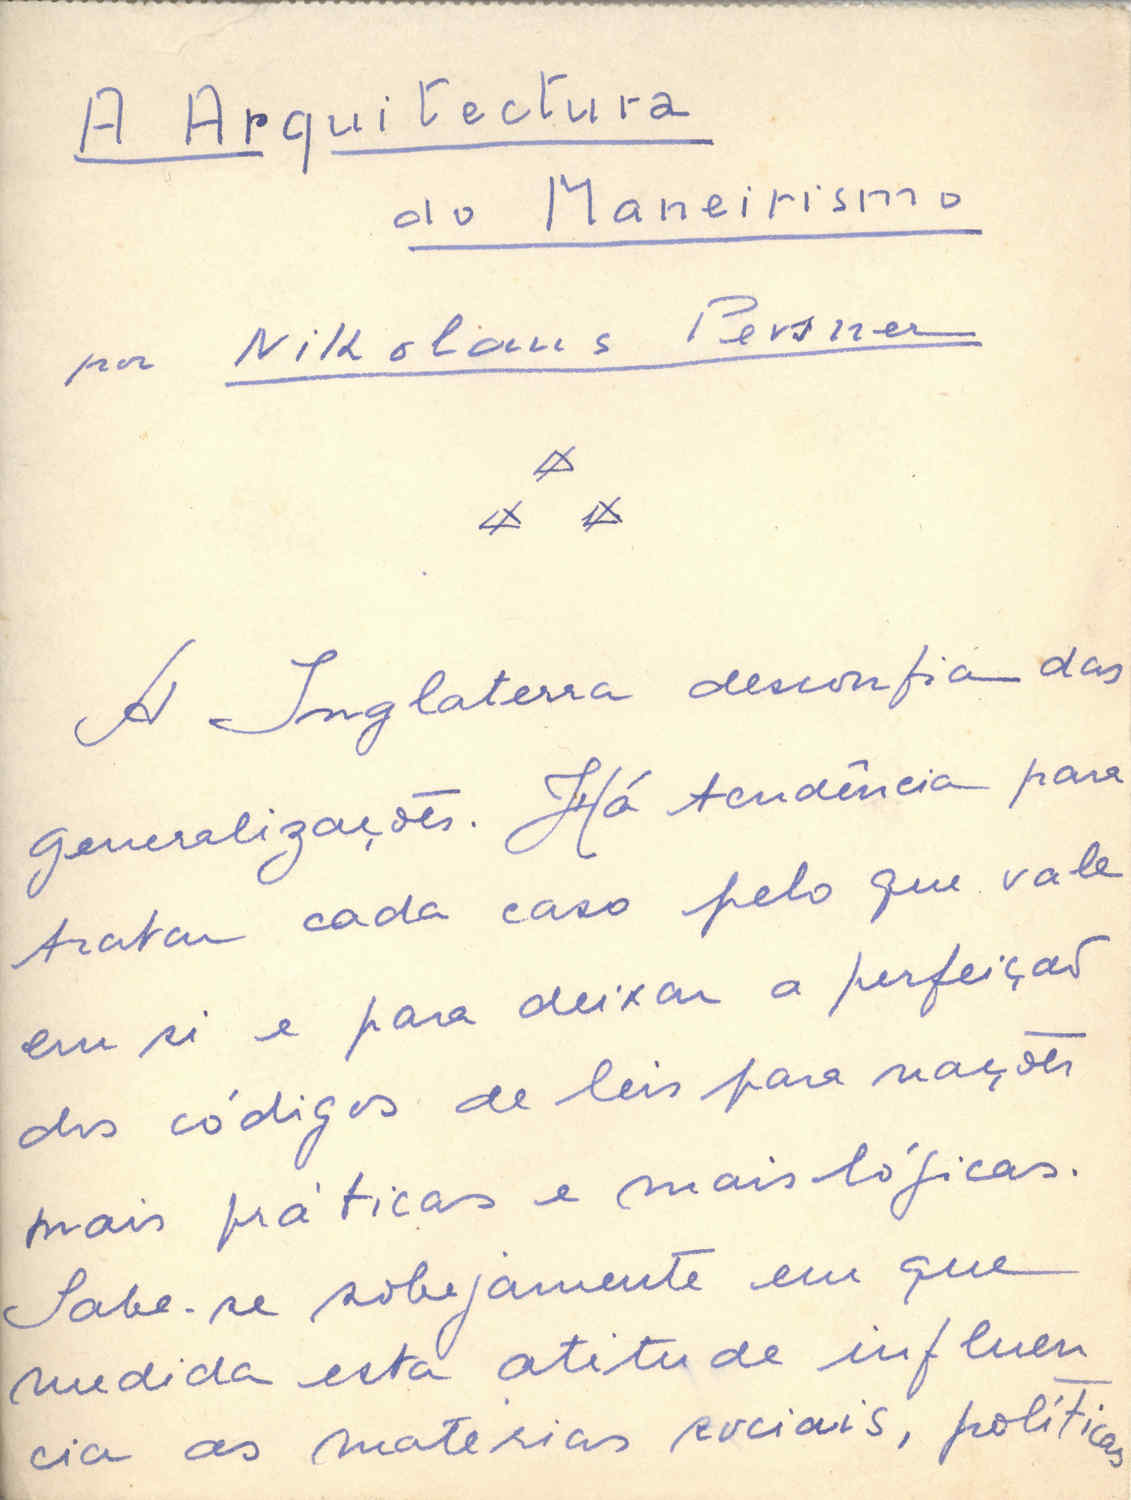 A Arquitectura
do Maneirismo
por Nikolaus Pevsner
A Inglaterra desconfia das
generalizações. Há tendência para
tratar cada caso pelo que vale
em si e para deixar a perfeição
dos códigos de leis para nações
mais práticas e mais lógicas.
Sabe-se sobejamente em que
medida esta atitude influen
cia as matérias sociais, políticas